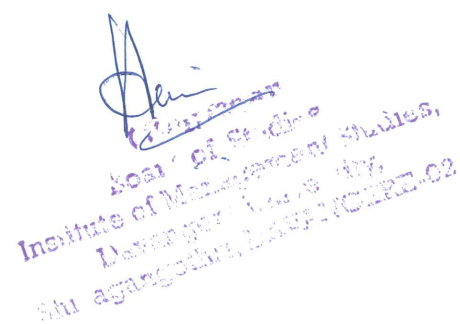 Chairman
Board of Studies
Institute of Management Studies,
Davangere University,
Shivagangothri, DAVANGERE-02